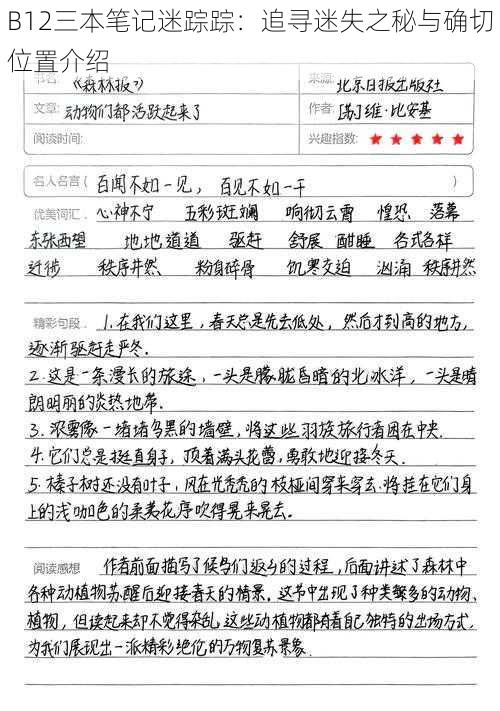 B12三本笔记迷踪踪：追寻迷失之秘与确切
位置介绍
书名： 《森林报》 来源： 北京日报出版社
文章： 动物们都活跃起来了 作者： [苏]维·比安基
阅读时间： 兴趣指数： ★ ★ ★ ★ ★
名人名言( 百闻不如一见，百见不如一干 )
优美词汇． 心神不宁 五彩斑斓 响彻云霄 惶恐 落幕
东张西望 地地道道 驱赶 舒展 酣睡 各式各样
迁徙 秩序井然 粉身碎骨 饥寒交迫 汹涌 秩序井然
精彩句段． 1.在我们这里，春天总是先去低处，然后才到高的地方，
逐渐驱赶走严冬．
2.这是一条漫长的旅途，一头是朦胧昏暗的北冰洋，一头是晴
朗明丽的炎热地带．
3.浓雾像一堵堵乌黑的墙壁，将这些羽族旅行者困在中央．
4.它们总是挺直身子，顶着满头花蕾，勇敢地迎接冬天．
5.榛子树还没有叶子，风在光秃秃的枝桠间穿来穿去，将挂在它们身
上的浅咖色的柔荑花序吹得晃来晃去。
阅读感想 作者前面描写了候鸟们返乡的过程，后面讲述了森林中
各种动植物苏醒后迎接春天的情景．这节中出现了种类繁多的动物、
植物，但读起来却不觉得杂乱，这些动植物都有着自己独特的出场方式，
为我们展现出一派精彩绝伦的万物复苏景象．